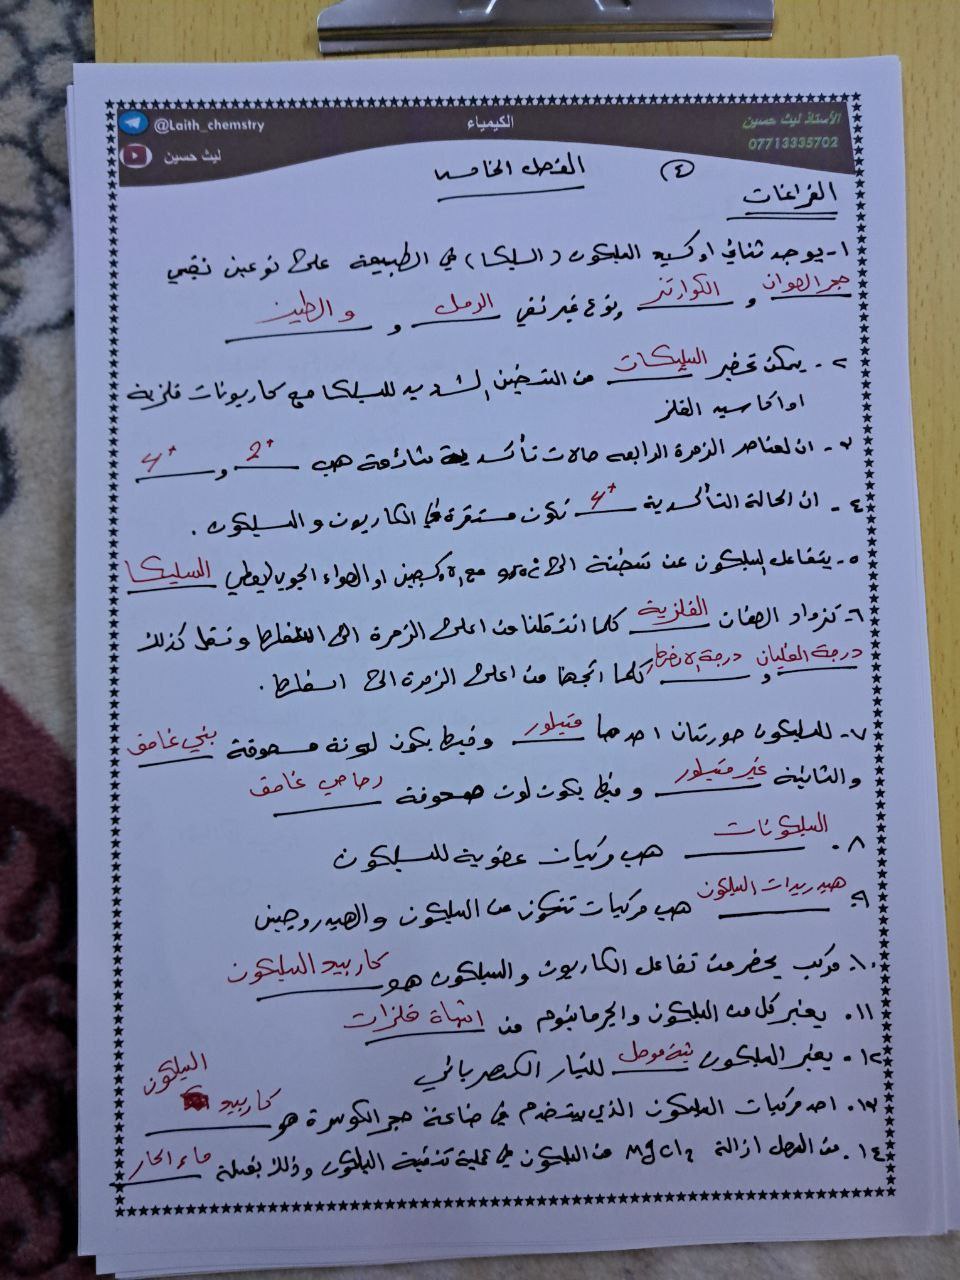 @Laith_chemstry
ليث حسين
الكيمياء
الأستاذ ليث حسين
07713335702
الفصل الخامس
٤
الفراغات
١- يوجد ثنائي اوكسيد السليكون (السليكا) في الطبيعة على نوعين نقي
حجر الصوان و الكوارتز ونوع غير نقي الرمل و والطين
٢- يمكن تحضير السليكات من التسخين الشديد للسليكا مع كاربونات فلزية
او اكاسيد الفلز
٣- ان لعناصر الزمرة الرابعة حالات تأكسدية شائعة هي 2+ و 4+
٤- ان الحالة التأكسدية 4+ تكون مستقرة في الكاربون والسليكون .
٥- يتفاعل السليكون عن تسخينة الى ٩٥٠ مع الاوكسجين او الهواء الجوي ليعطي السليكا
٦- تزداد الصفات الفلزية كلما انتقلنا من اعلى الزمرة الى اسفلها وتقل كذلك
درجة الغليان و درجة الانصهار كلما اتجهنا من اعلى الزمرة الى اسفلها .
٧- للسليكون صورتان احدهما متبلور وفيها يكون لونة مسحوقة بني غامق
والثانية غير متبلور وفيها يكون لون مسحوقة رصاصي غامق
٨. السليكونات هي مركبات عضوية للسليكون
٩. هيدريدات السليكون هي مركبات تتكون من السليكون والهيدروجين
١٠. مركب يحضر من تفاعل الكاربون والسليكون هو كاربيد السليكون
١١. يعتبر كل من السليكون والجرمانيوم من اشباة فلزات
١٢- يعتبر السليكون شبة موصل للتيار الكهربائي
١٣. احد مركبات السليكون الذي يستخدم في صناعة حجر الكوسرة هو كاربيد السليكون
١٤. من السهل ازالة MgCl2 من السليكون في عملية تنقية السليكون وذلك بغسلة ماء الحار